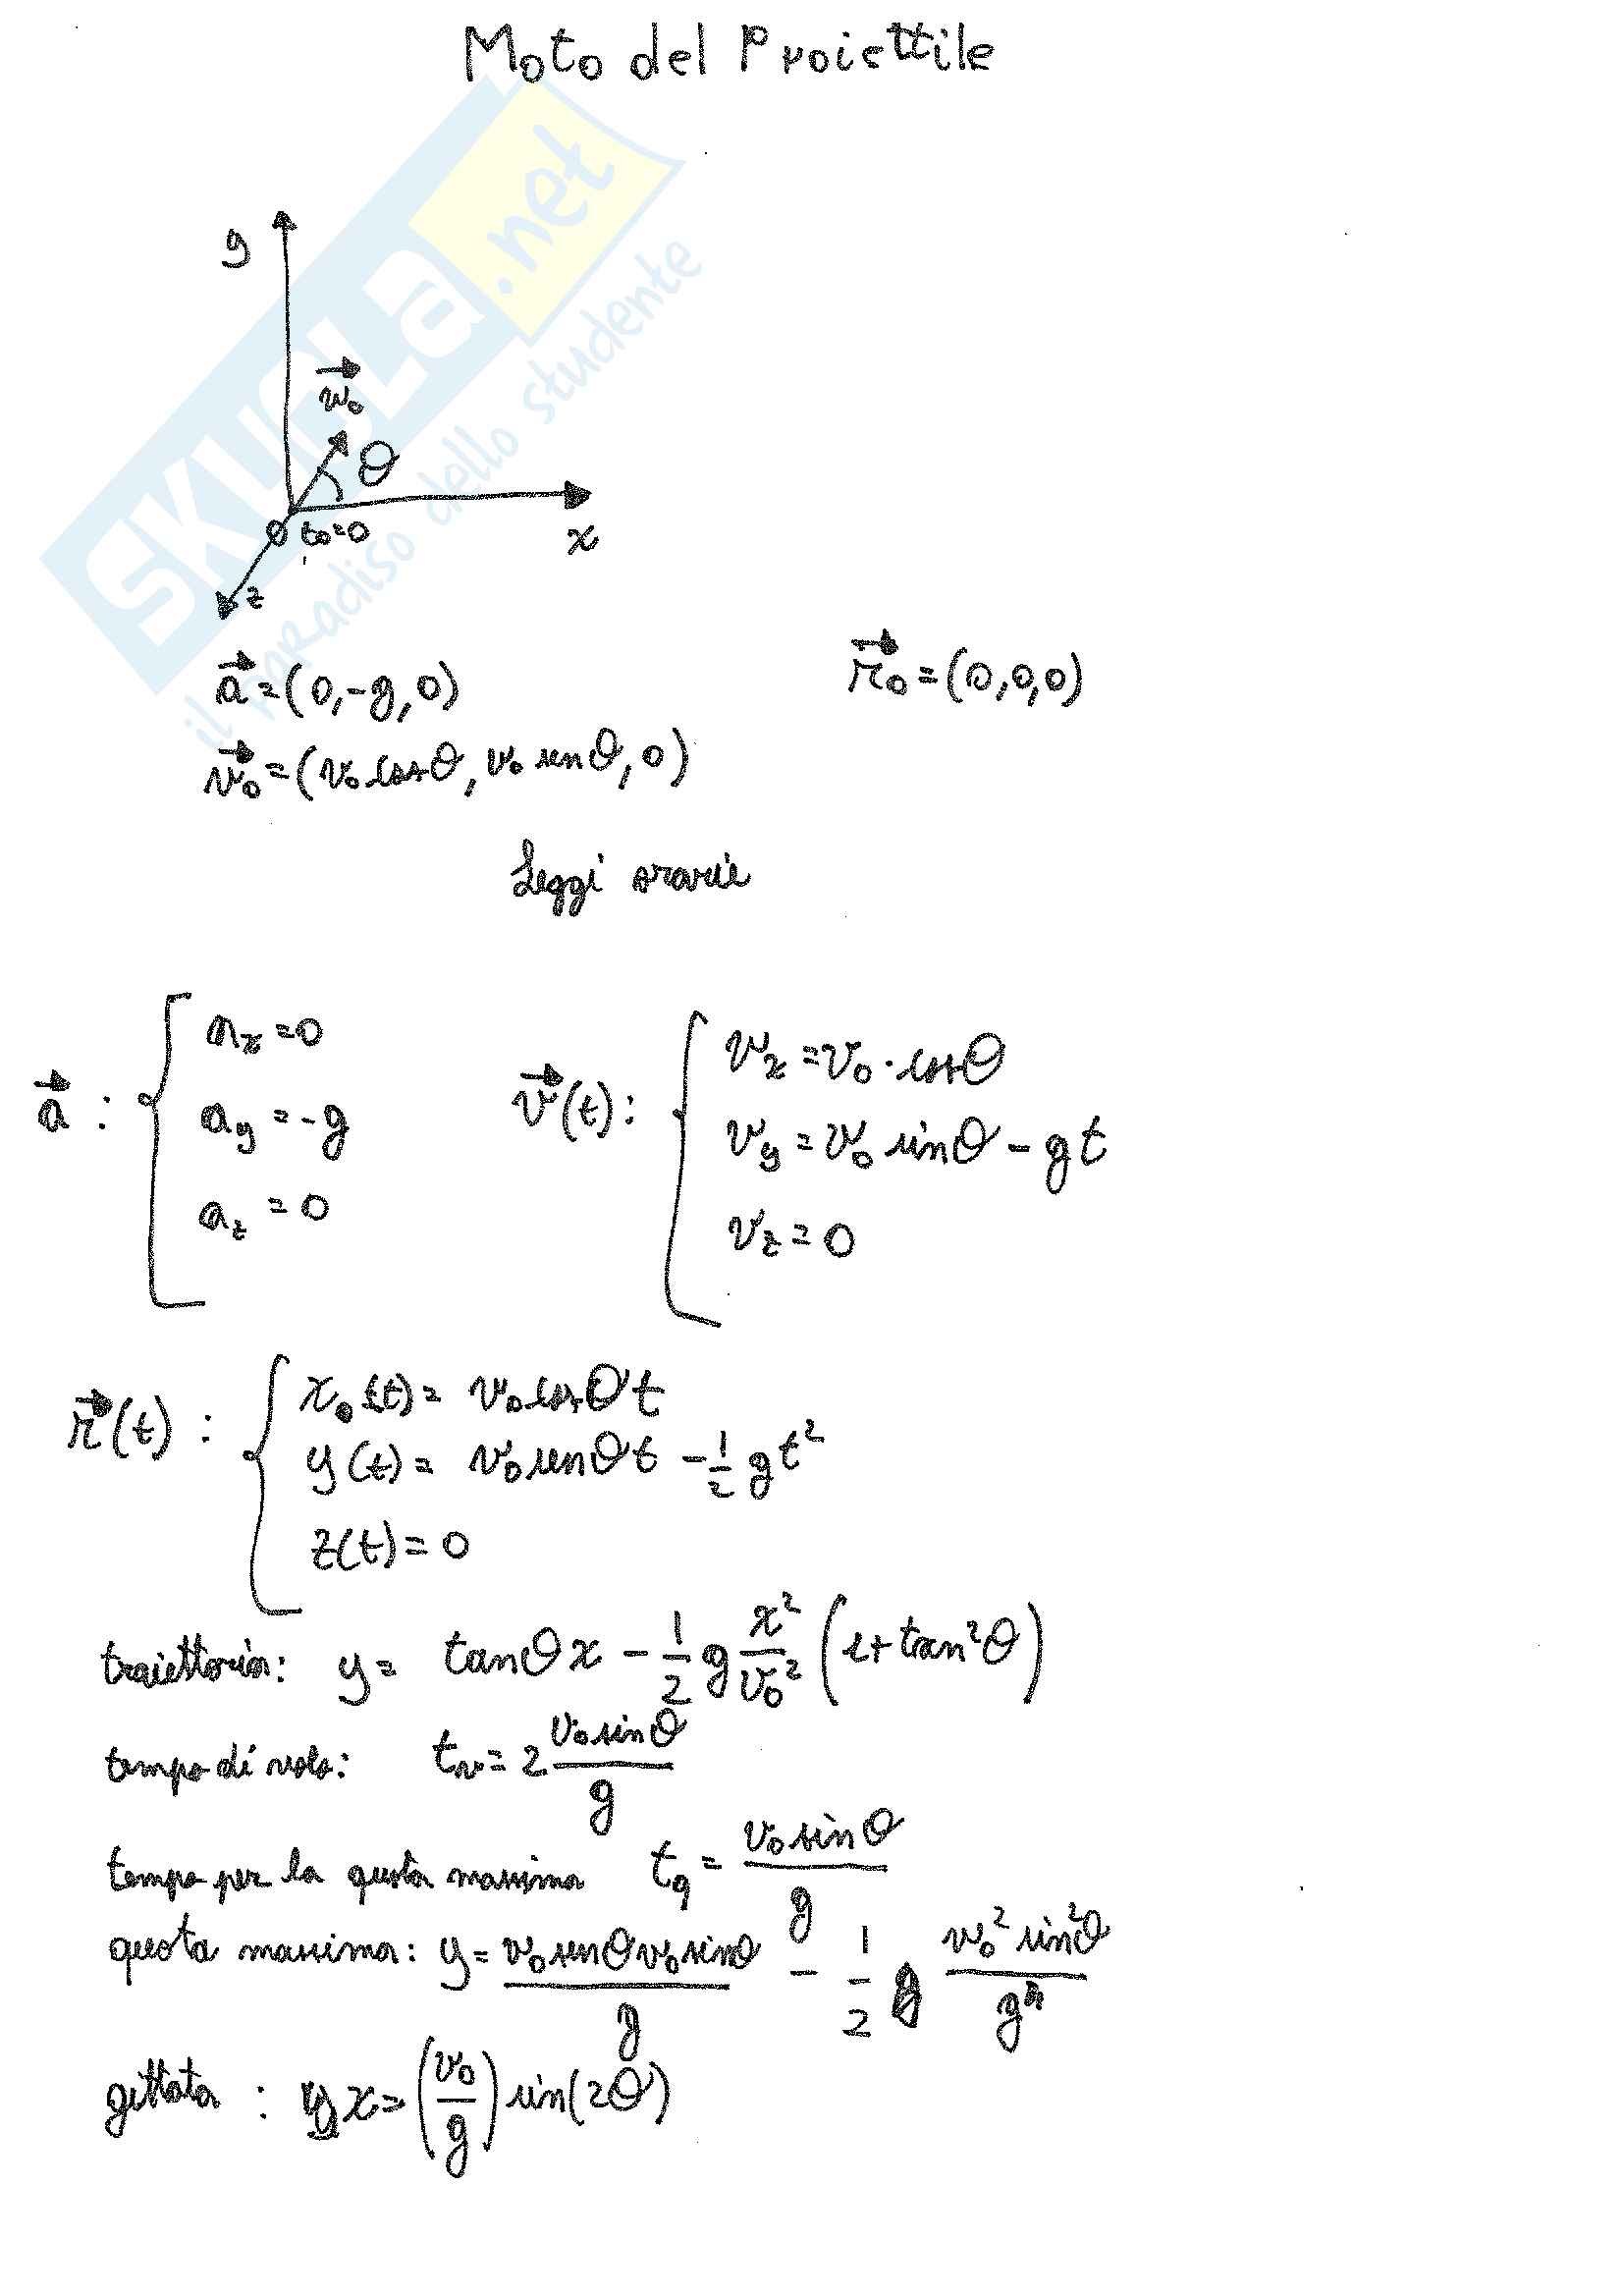 Moto del Proiettile
SKUOLA.net
il paradiso dello studente
y
v⃗₀
θ
O t₀=0
x
z
a⃗=(0,-g,0) r⃗₀=(0,0,0)
v⃗₀=(v₀ cosθ, v₀ senθ, 0)
Leggi orarie
a⃗ : { aₓ=0
a_y=-g
a_z=0
v⃗(t): { vₓ=v₀·cosθ
v_y=v₀ sinθ - gt
v_z=0
r⃗(t) : { x(t)= v₀ cosθ t
y(t)= v₀ senθ t - 1/2 gt²
z(t)=0
traiettoria: y= tanθ x - 1/2 g x²/v₀² (1+tan²θ)
tempo di volo: t_v= 2 v₀ sinθ/g
tempo per la quota massima t_q= v₀ sinθ/g
quota massima: y= v₀ senθ v₀ sinθ/g - 1/2 g v₀² sin²θ/g²
gittata : x= (v₀/g) sin(2θ)